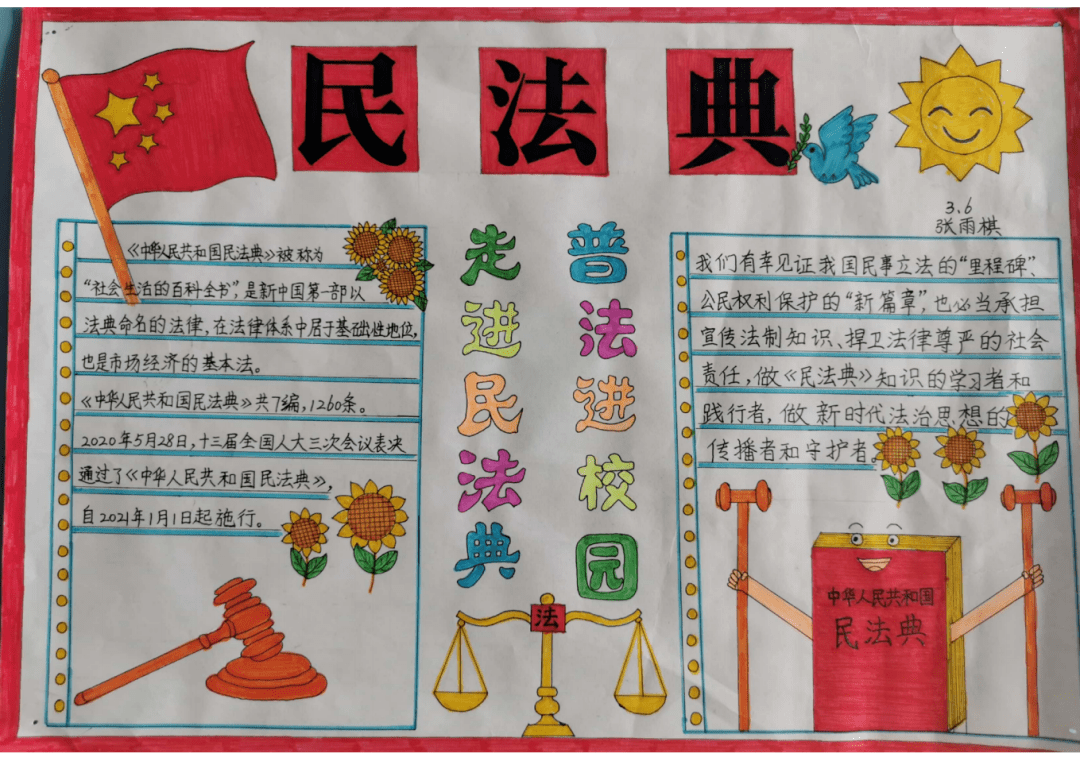 民法典
3.6
张雨棋
《中华人民共和国民法典》被称为
“社会生活的百科全书”,是新中国第一部以
法典命名的法律,在法律体系中居于基础性地位,
也是市场经济的基本法。
《中华人民共和国民法典》共7编,1260条。
2020年5月28日,十三届全国人大三次会议表决
通过了《中华人民共和国民法典》,
自2021年1月1日起施行。
走进民法典
普法进校园
法
我们有幸见证我国民事立法的“里程碑”、
公民权利保护的“新篇章”,也必当承担
宣传法制知识、捍卫法律尊严的社会
责任,做《民法典》知识的学习者和
践行者,做新时代法治思想的
传播者和守护者
中华人民共和国
民法典